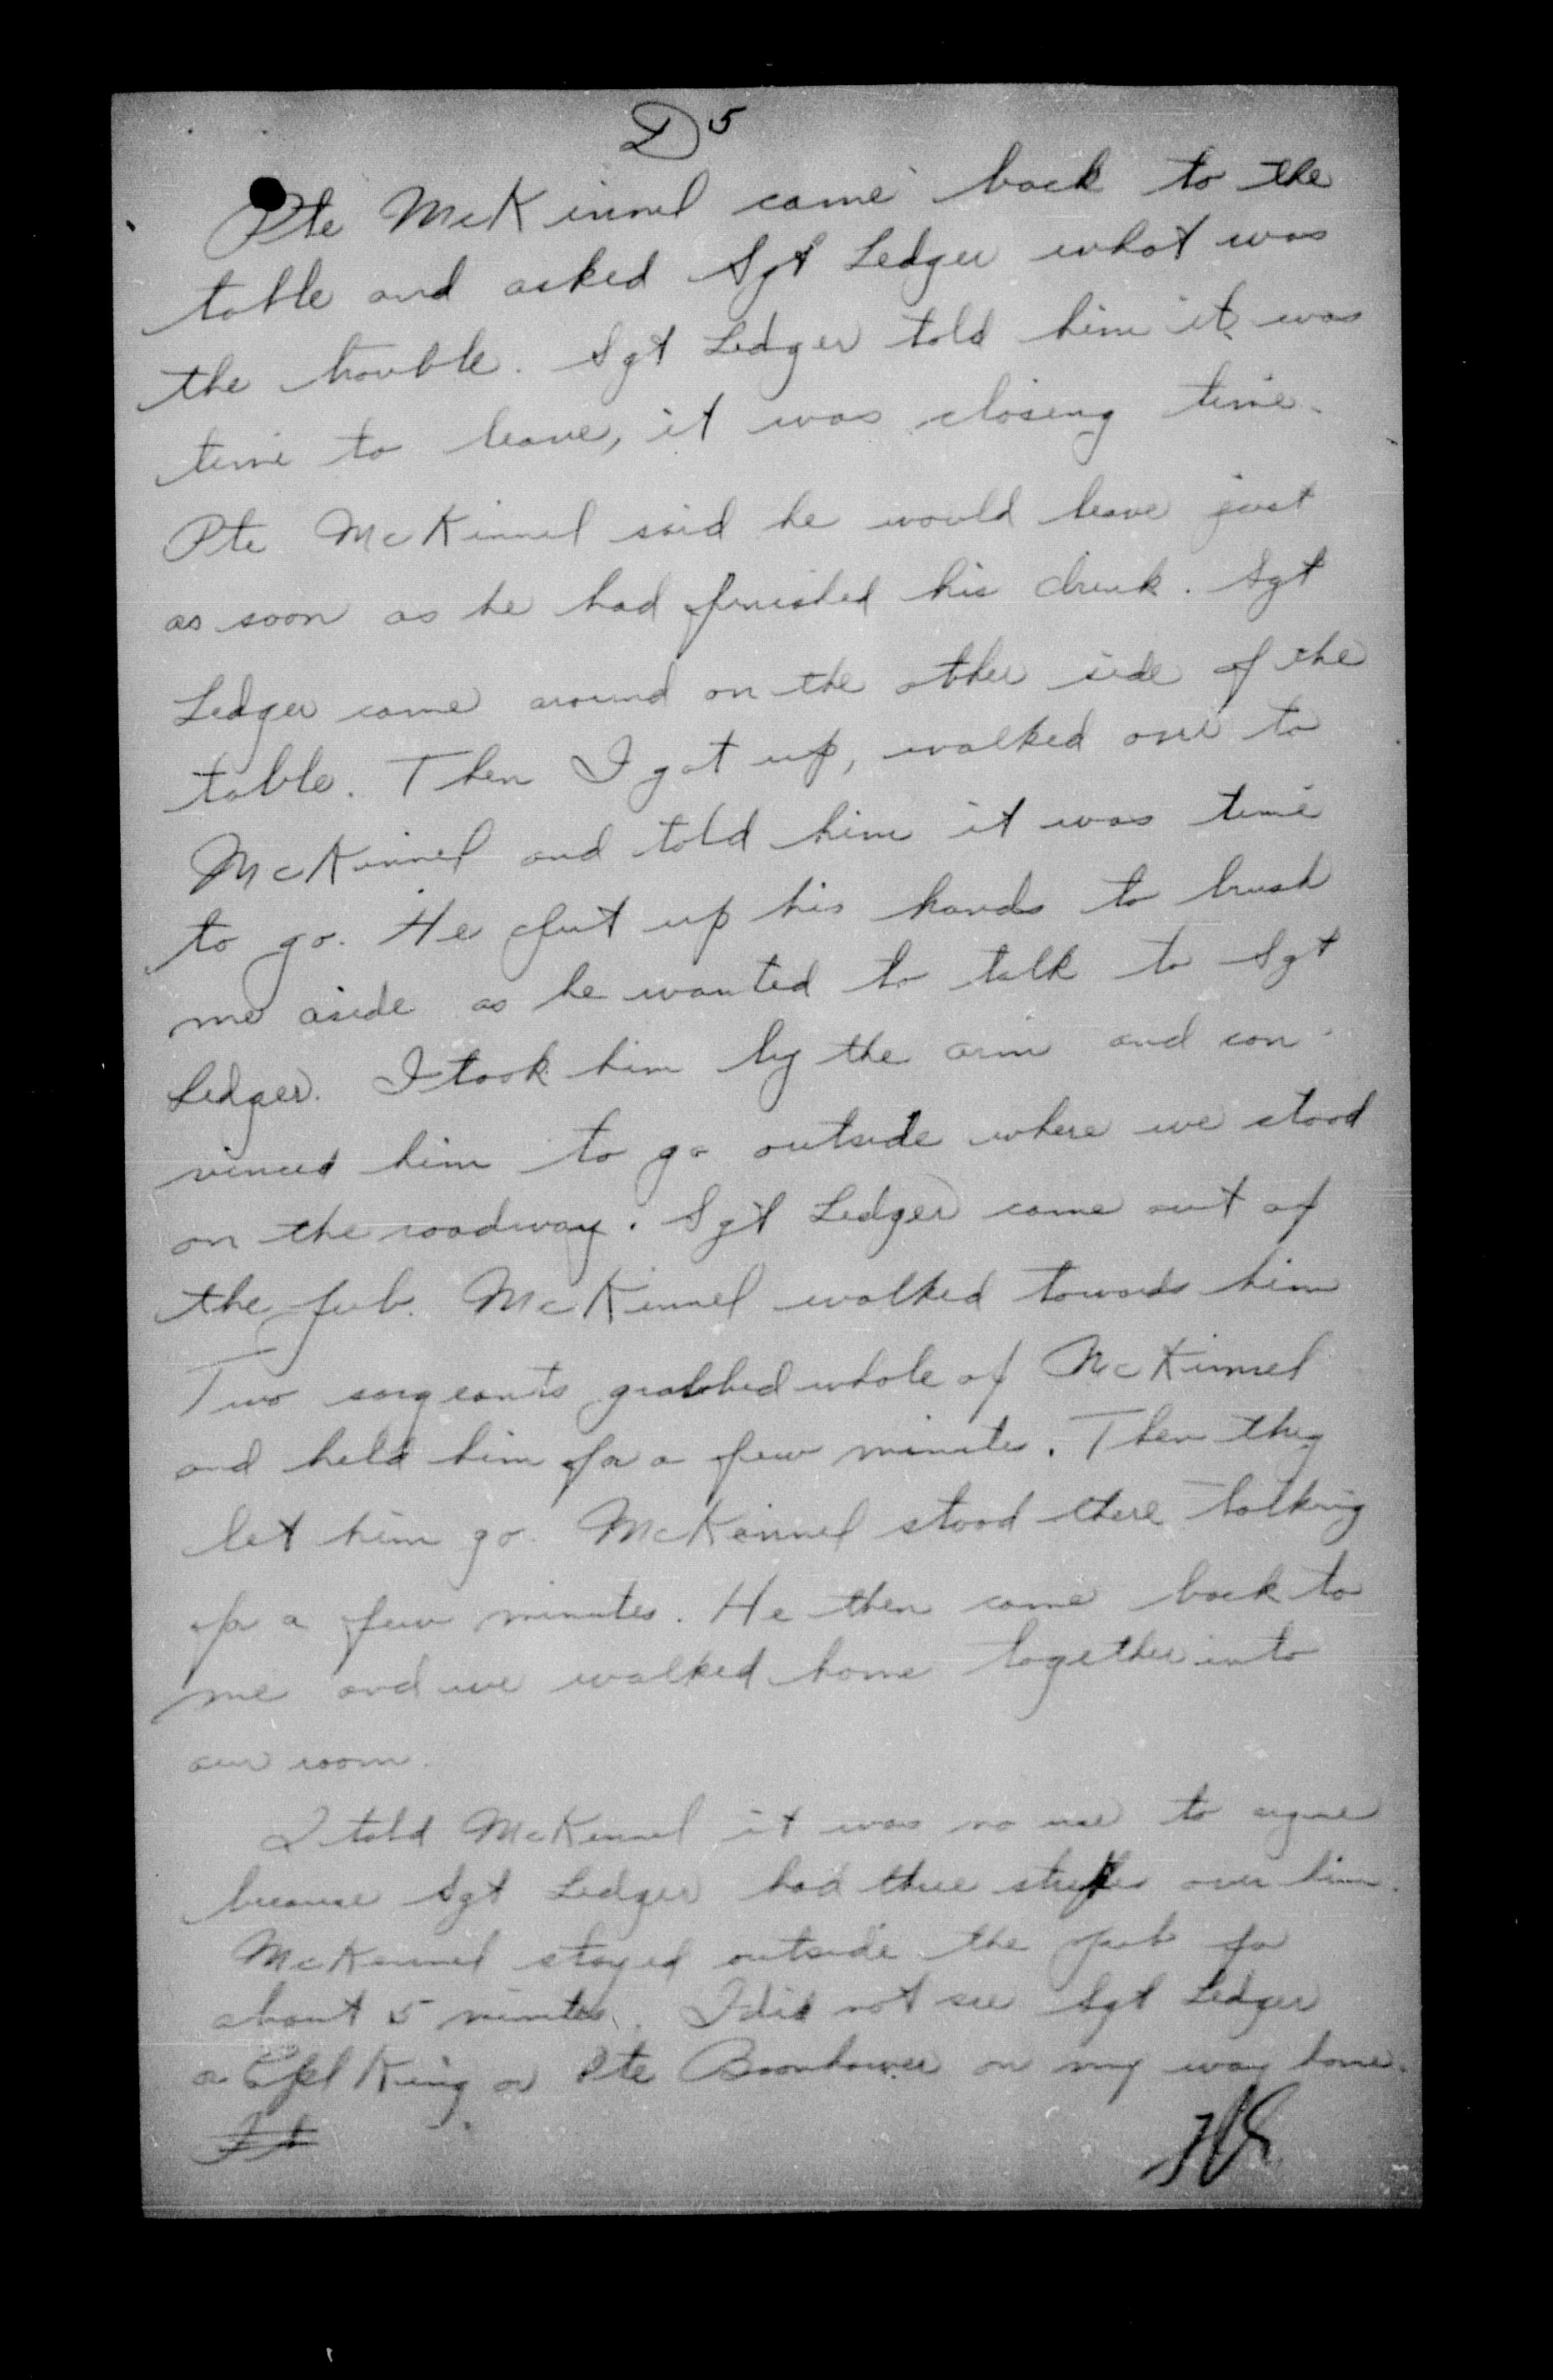 D5
Pte McKinnel came back to the
table and asked Sgt Ledger what was
the trouble. Sgt Ledger told him it was
time to leave, it was closing time.
Pte McKinnel said he would leave just
as soon as he had finished his drink. Sgt
Ledger came around on the other side of the
table. Then I got up, walked over to
McKinnel and told him it was time
to go. He put up his hands to brush
me aside as he wanted to talk to Sgt
Ledger. I took him by the arm and con-
vinced him to go outside where we stood
on the roadway. Sgt Ledger came out of
the pub. McKinnel walked towards him
Two sargeants grabbed whole of McKinnel
and held him for a few minutes. Then they
let him go. McKinnel stood there talking
for a few minutes. He then came back to
me and we walked home together into
our room.
I told McKinnel it was no use to argue
because Sgt Ledger had three stripes over him.
McKinnel stayed outside the pub for
about 5 minutes. I did not see Sgt Ledger
or Cpl King or Pte Boonhower on my way home.